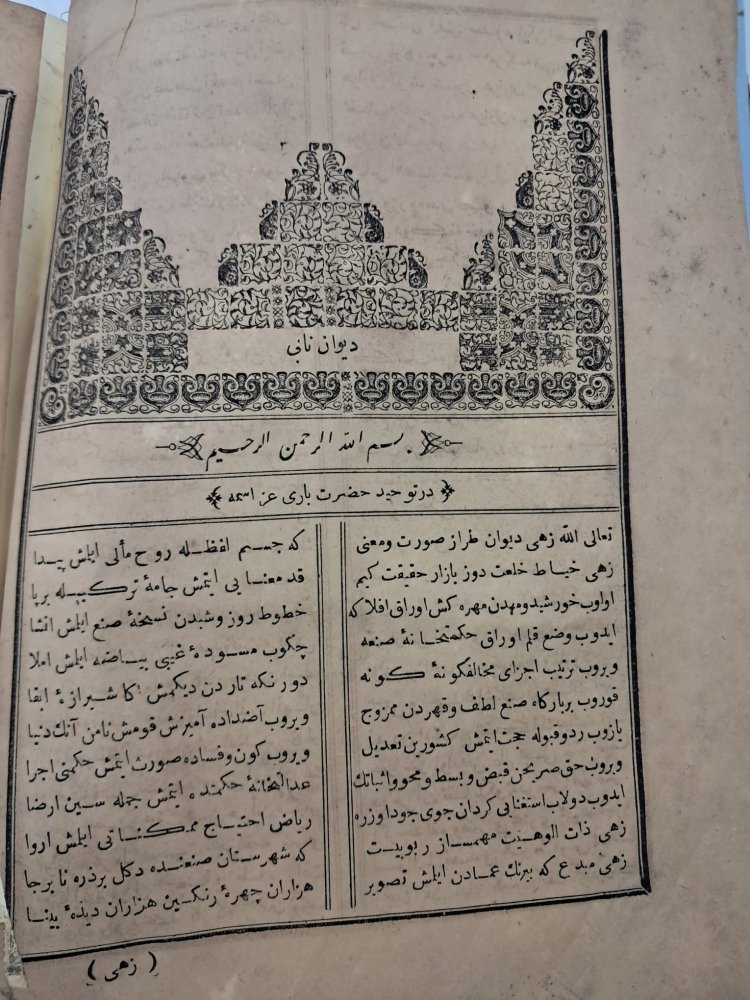 دیوان نابی
بسم الله الرحمن الرحیم
در توحید حضرت باری عز اسمه
تعالی الله زهی دیوان طراز صورت ومعنی که جسم لفظله روح مآلی ایلمش پیدا
زهی خیاط خلعت دوز بازار حقیقت کیم قد معنایی ایتمش جامهٔ ترکیبله برپا
اولوب خورشید ومهدن مهره کش اوراق افلاکه خطوط روز وشبدن نسخهٔ صنع ایلمش انشا
ایدوب وضع قلم اوراق حکمتخانهٔ صنعه چکوب مسودهٔ غیبی بیاضه ایلمش املا
ویروب ترتیب اجزای مخالفکونهٔ کونه دورنکه تاردن دیکمش اکا شیرازهٔ ابقا
قوروب بر بارکاه صنع لطف وقهردن ممزوج ویروب آضداده آمیزش قومش نامن آنك دنیا
یازوب رد وقبوله حجت ایتمش کشورین تعدیل ویروب کون وفساده صورت ایتمش حکمنی اجرا
ویروب حق صریحن قبض وبسط ومحو واثباتك عدالتخانهٔ حکمتده ایتمش جمله سین ارضا
ایدوب دولاب استغنایی کردان جوی جود اوزره ریاض احتیاج ممکناتی ایلمش اروا
زهی ذات الوهیت مهمساز ربوبیت که شهرستان صنعنده دکل بر ذره نابرجا
زهی مبدع که بیرنك عمادن ایلمش تصویر هزاران چهرهٔ رنکین هزاران دیدهٔ بینا
( زهی )